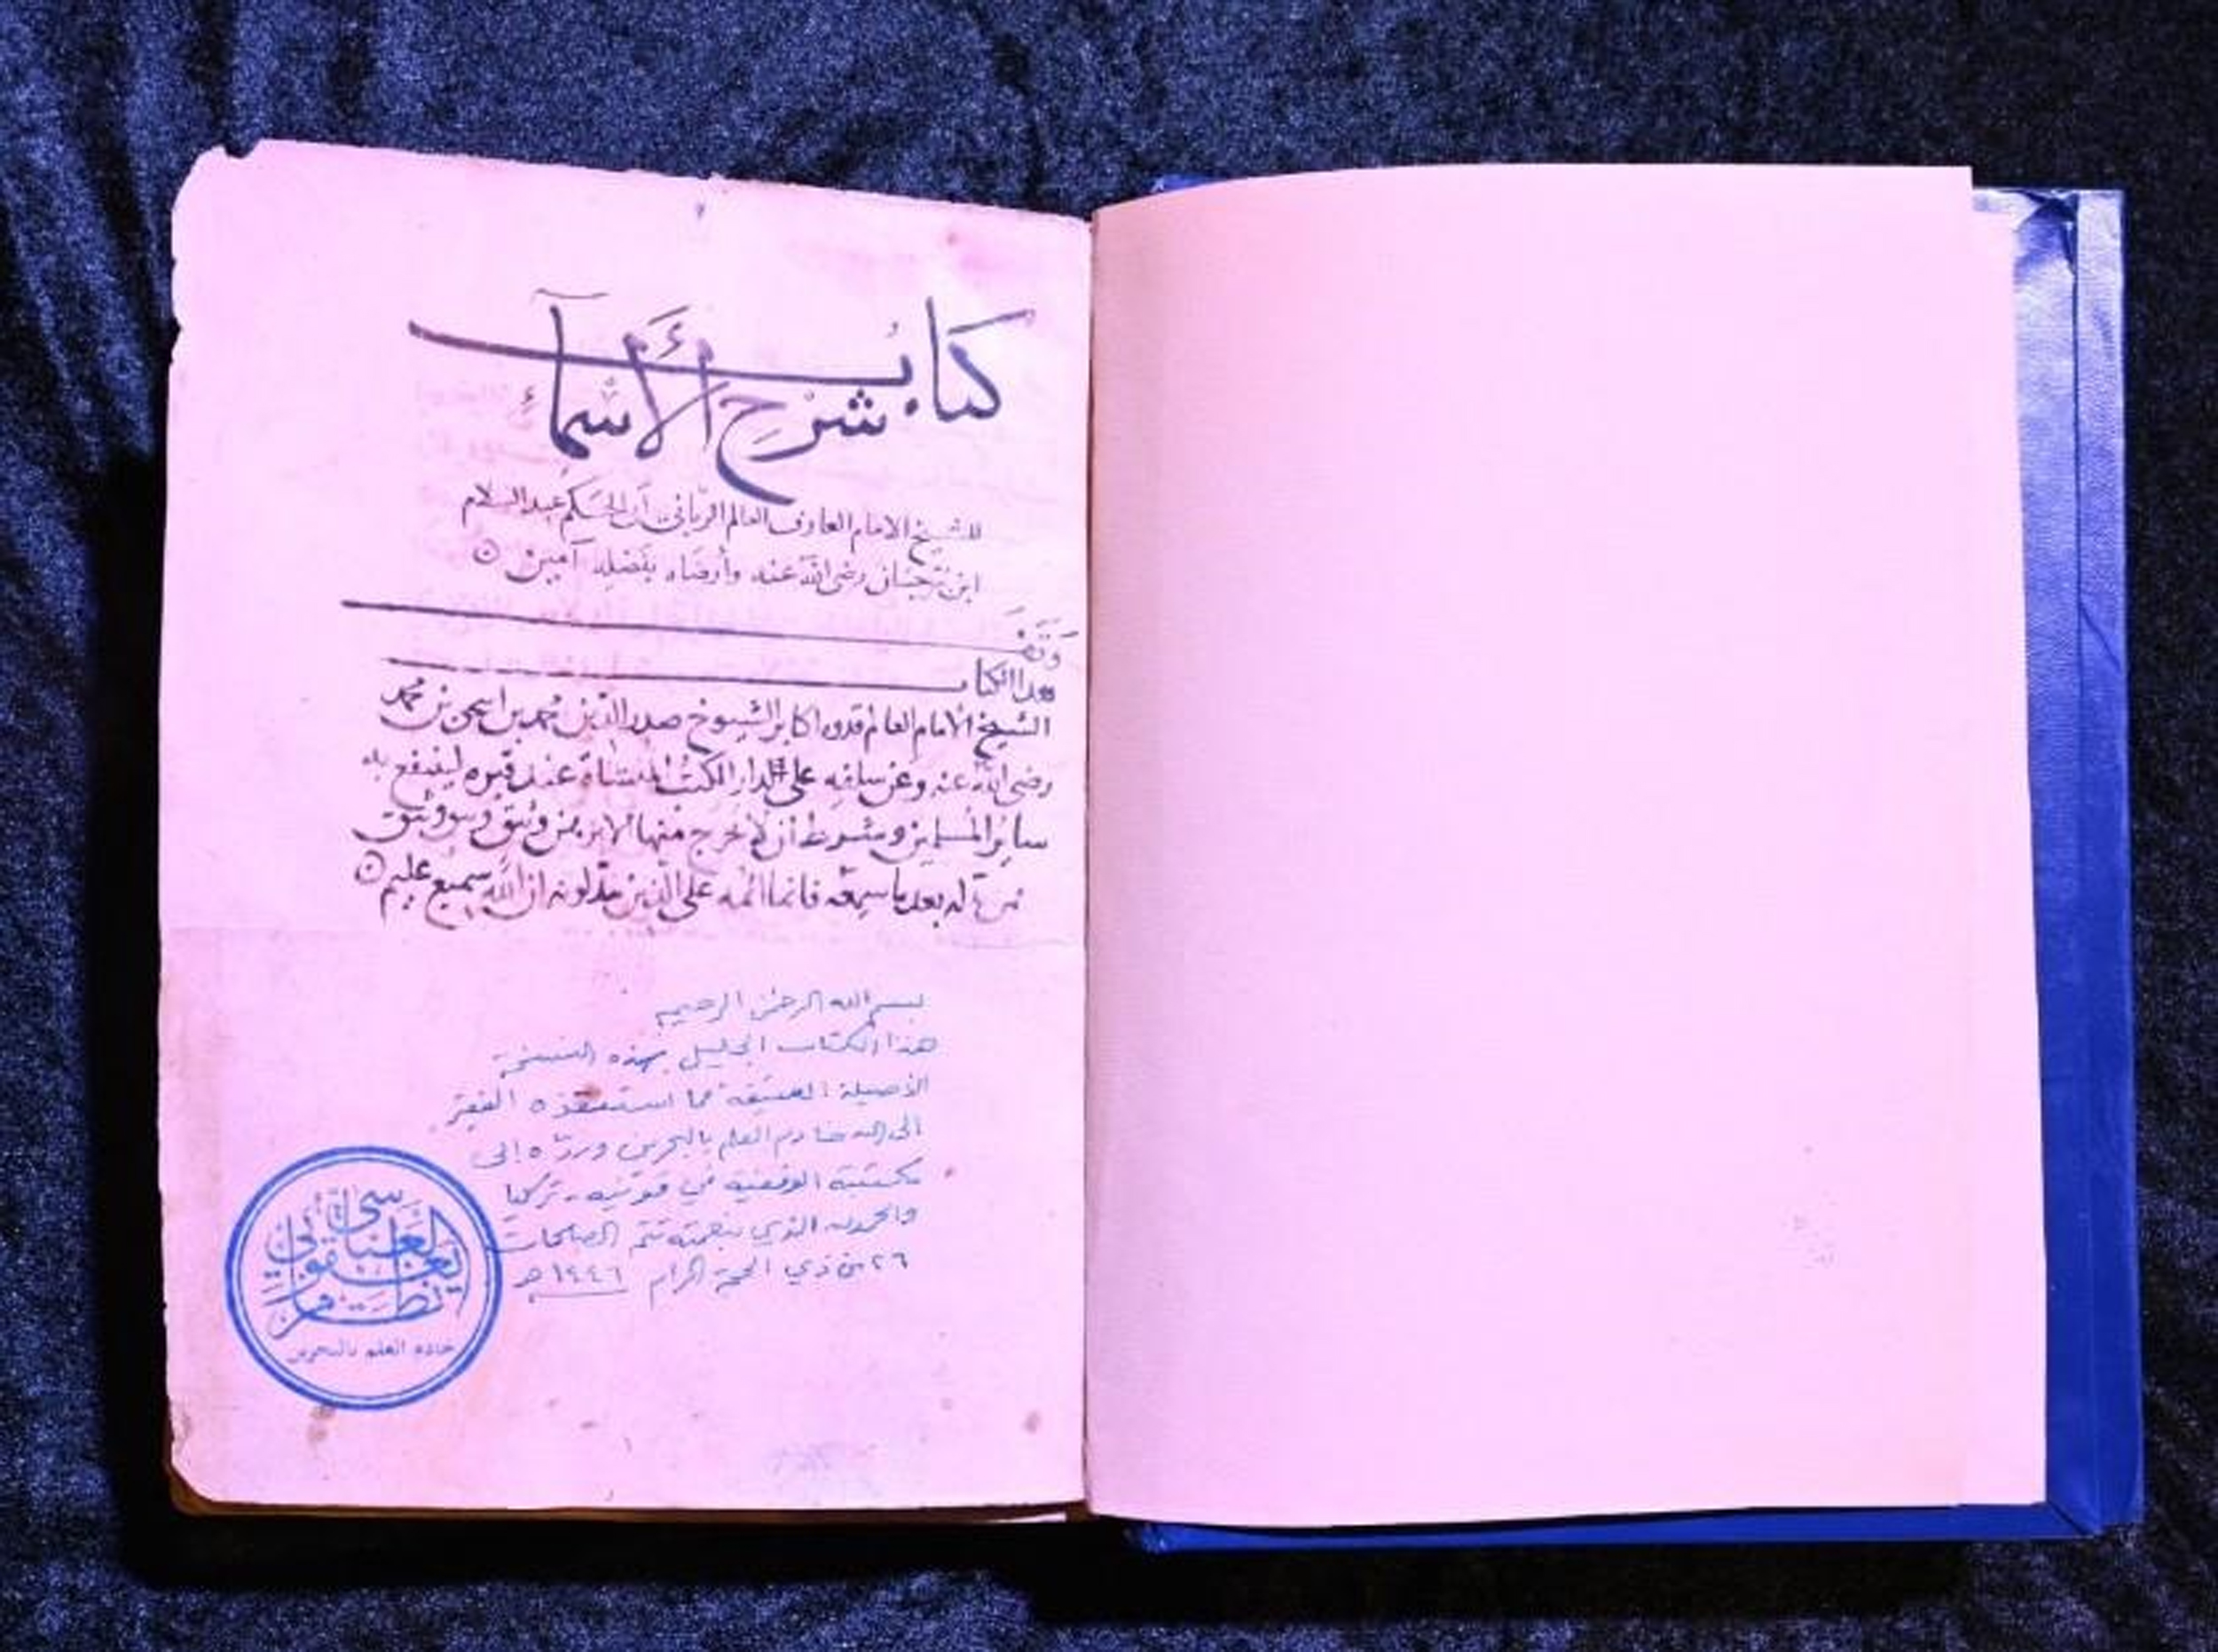 كتاب
شرح الأسماء
للشيخ الامام العارف العالم الرباني أبي الحكم عبد السلام
ابن برجان رضي الله عنه وأرضاه بفضله آمين
وقف
هذا الكتاب
الشيخ الامام العالم قدوة اكابر الشيوخ صدر الدين محمد بن اسحق بن محمد
رضي الله عنه وعن سلفه على دار الكتب المنشاة عند قبره لينتفع به
ساير المسلمين وشرط ان لا تخرج منها لا برهن وثيق وغير وثيق
فمن بدله بعد ما سمعه فانما اثمه على الذين يبدلونه ان الله سميع عليم
بسم الله الرحمن الرحيم
هذا الكتاب الجليل بهذه النسخة
الأصيلة العتيقة مما استنقذه الفقير
الى الله خادم العلم بالبحرين وردّه إلى
مكتبته الوقفية في قونية - تركيا
والحمد لله الذي بنعمته تتم الصالحات
٢٦ من ذي الحجة الحرام ١٤٤٦ هـ
نظام
يعقوبي
العباسي
خادم العلم بالبحرين